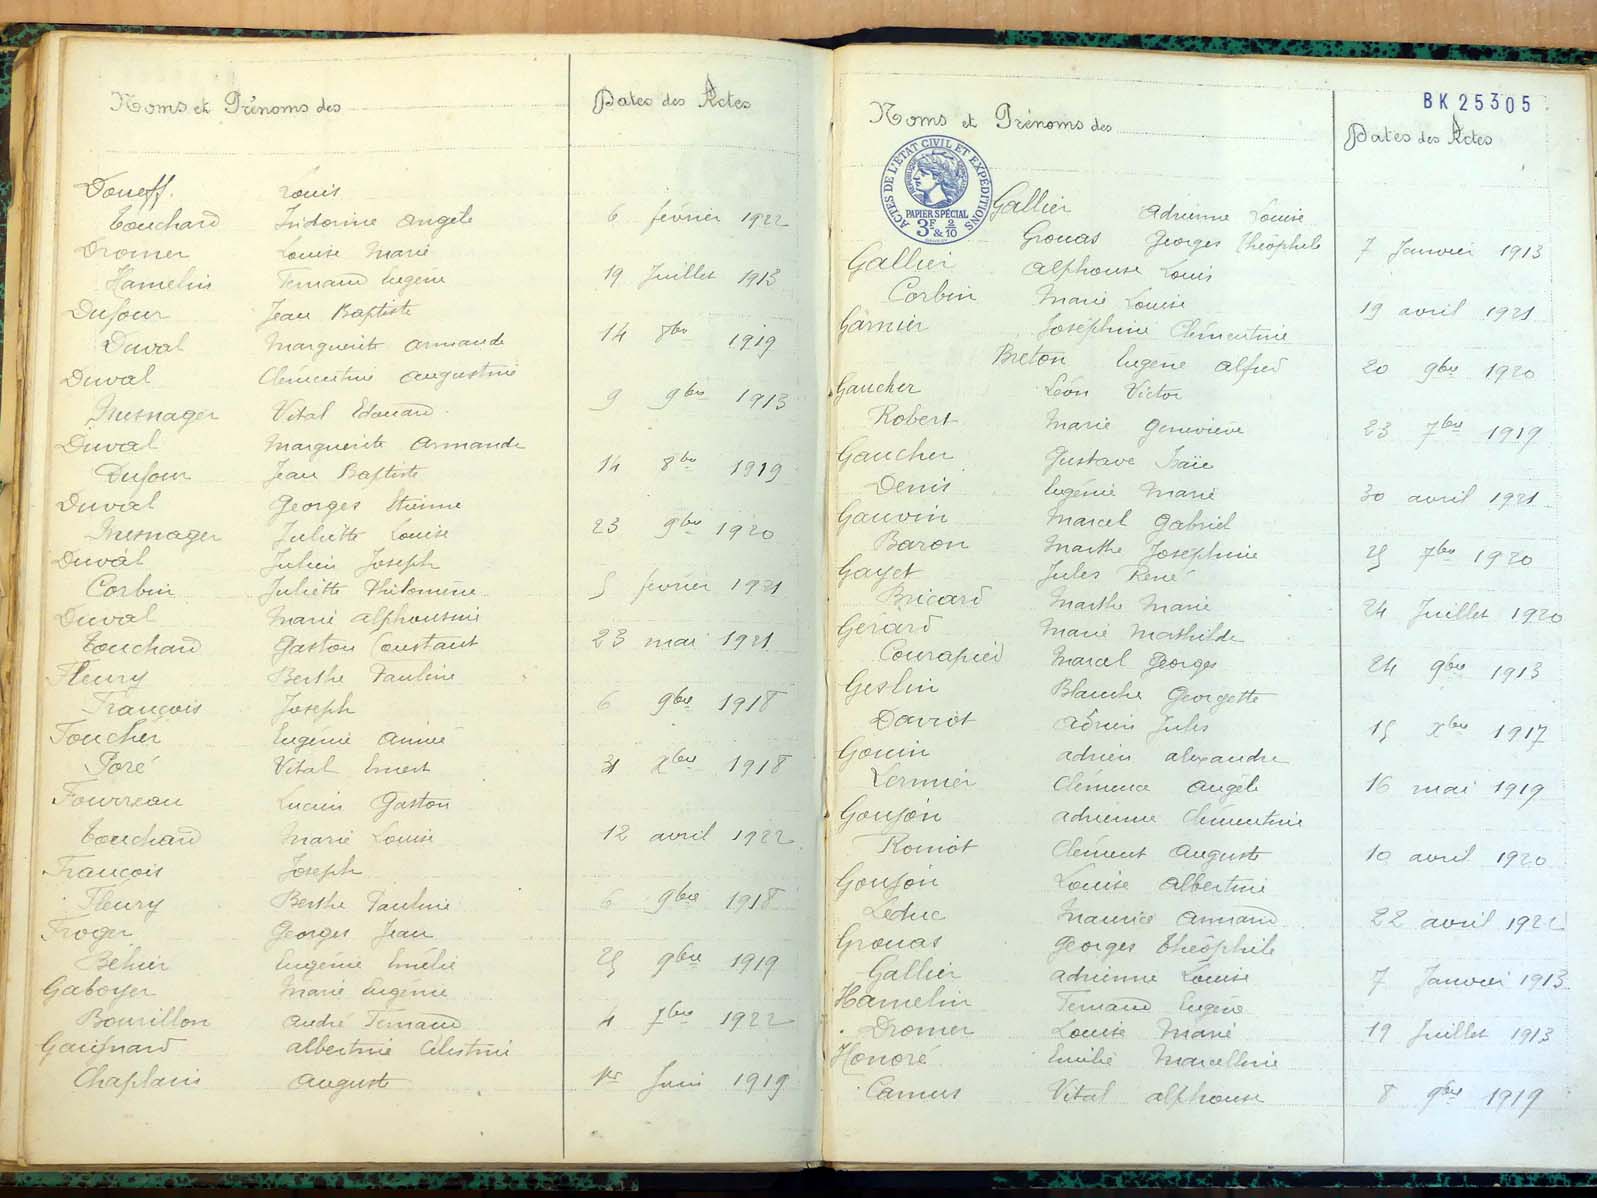 Noms et Prénoms des
Dates des Actes
Doueff. Louis
Touchard Antoinine Angèle 6 février 1922
Dromer Louise Marie
Hamelin Fernand Eugène 19 Juillet 1913
Dufour Jean Baptiste
Duval Marguerite Armande 14 8bre 1919
Duval Clémentine Augustine
Mesnager Vital Edouard 9 9bre 1913
Duval Marguerite Armande
Dufour Jean Baptiste 14 8bre 1919
Duval Georges Etienne
Mesnager Juliette Louise 23 9bre 1920
Duval Julien Joseph
Corbin Juliette Philomène 5 février 1921
Duval Marie Alphonsine
Touchard Gaston Constant 23 mai 1921
Fleury Berthe Pauline
François Joseph 6 9bre 1918
Foucher Eugénie Aimée
Poré Vital Ernest 31 Xbre 1918
Fourreau Lucien Gaston
Touchard Marie Louise 12 avril 1922
François Joseph
Fleury Berthe Pauline 6 9bre 1918
Froger Georges Jean
Béhier Eugénie Emélie 25 9bre 1919
Gaboyer Marie Eugénie
Bourillon André Fernand 4 7bre 1922
Gaignard Albertine Célestine
Chaplain Auguste 1er Juin 1919
BK 25305
Noms et Prénoms des
Dates des Actes
ACTES DE L'ÉTAT CIVIL ET EXPÉDITIONS
PAPIER SPÉCIAL
3F & 2/10
Gallier Adrienne Louise
Grouas Georges Théophile 7 Janvier 1913
Gallier Alphonse Louis
Corbin Marie Louise 19 avril 1921
Garnier Joséphine Clémentine
Breton Eugène Alfred 20 9bre 1920
Gaucher Léon Victor
Robert Marie Geneviève 23 7bre 1919
Gaucher Gustave Isaïe
Denis Eugénie Marie 30 avril 1921
Gauvin Marcel Gabriel
Baron Marthe Joséphine 25 7bre 1920
Gayet Jules René
Bricard Marthe Marie 24 Juillet 1920
Gérard Marie Mathilde
Courapied Marcel Georges 24 9bre 1913
Geslin Blanche Georgette
Daviot Adrien Jules 15 Xbre 1917
Gouin Adrien Alexandre
Lermier Clémence Angèle 16 mai 1919
Goujon Adrienne Clémentine
Romot Clément Auguste 10 avril 1920
Goujon Louise Albertine
Leduc Maurice Armand 22 avril 1922
Grouas Georges Théophile
Gallier Adrienne Louise 7 Janvier 1913
Hamelin Fernand Eugène
Dromer Louise Marie 19 Juillet 1913
Honoré Emilie Marcelline
Camus Vital Alphonse 8 9bre 1919